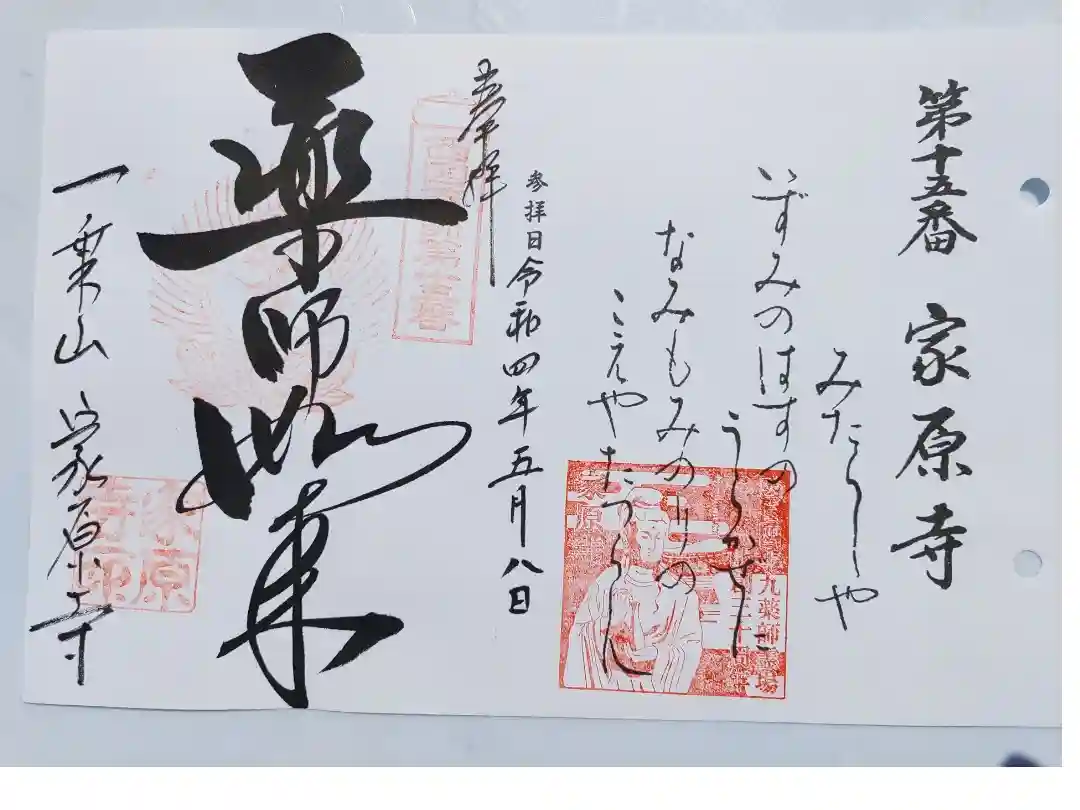 第十五番 家原寺
みたらしや
いずみのはすの
うらかぜに
なみもみのりの
こえやたつらん
九薬師霊場
三十周年
家原
参拝日令和四年五月八日
奉拝
薬師如来
一乗山 家原寺
家原寺印